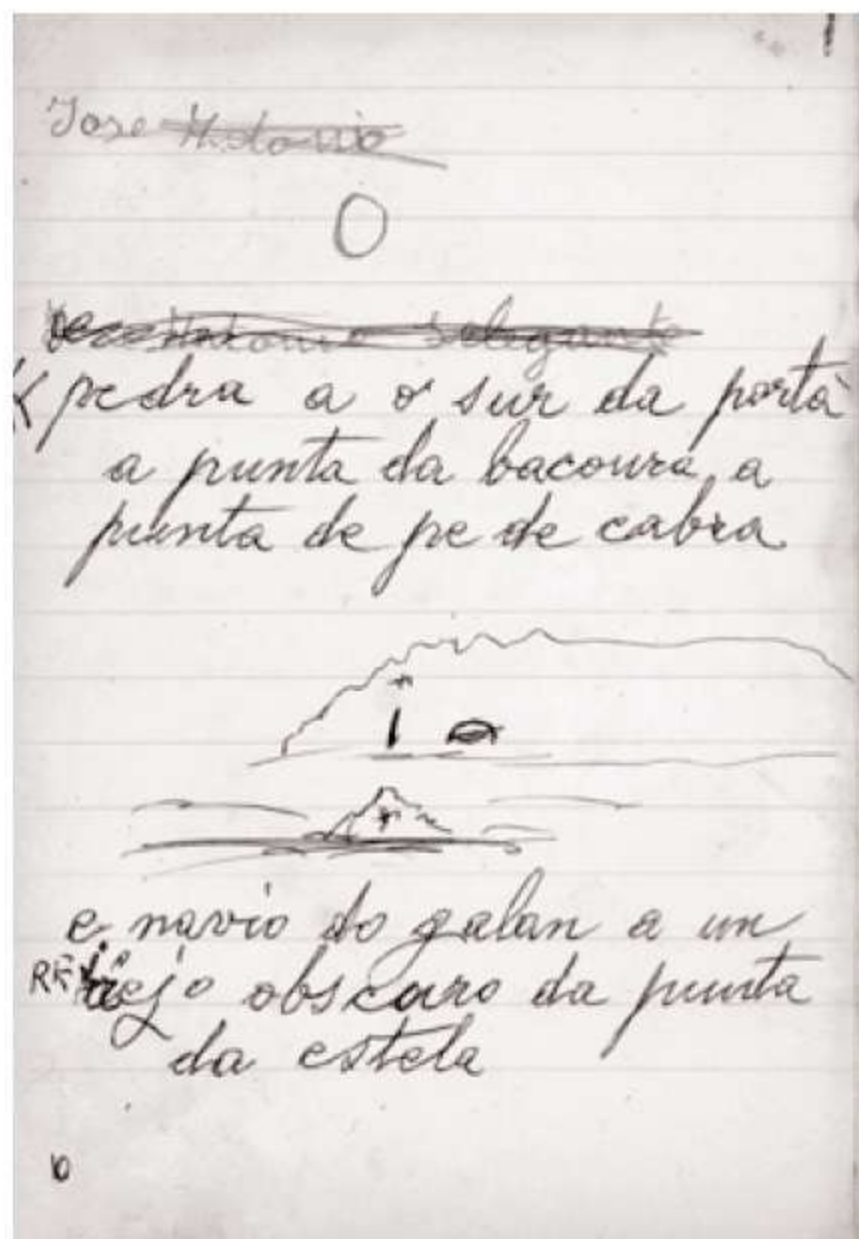 Jose Antonio
O
Jose Antonio
pedra a o sur da porta
a punta da bacoura, a
punta de pe de cabra
e navio do galan a un
rejo obscuro da punta
da estela